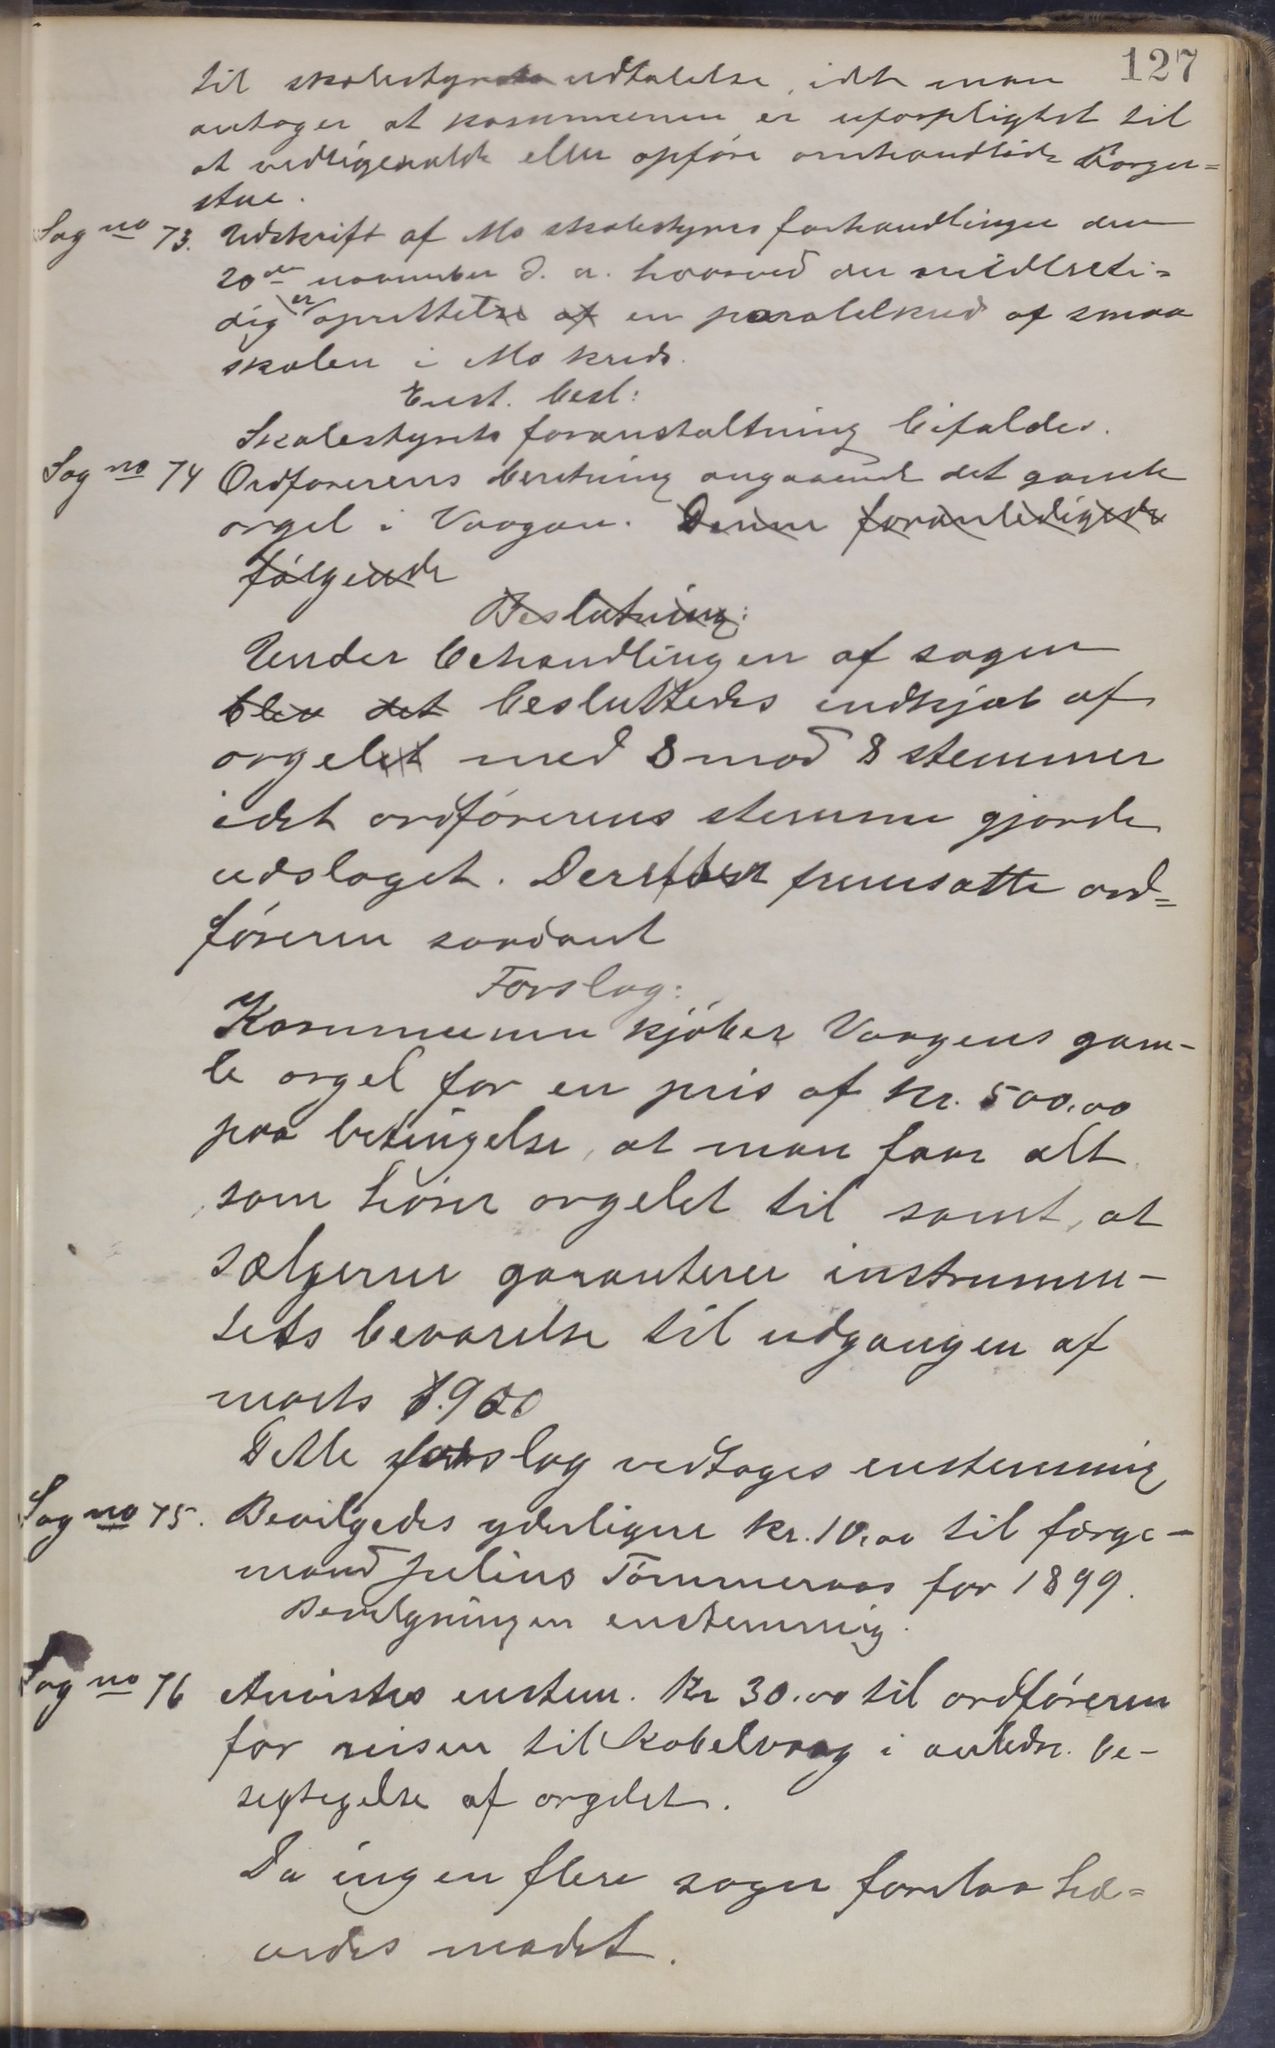 127
til skolestyrets udtalelse, idet man
antager at kommunen er uforpligtet til
at vedligeholde eller opføre omhandlede Borger=
stue.
Sag no 73. Udskrift af Mo skolestyres forhandlinger den
20de november d. a. hvorved der midlerti=
dig er oprettelse af en paralelkred af smaa
skolen i Mo kreds.
Enst. besl:
Skolestyrets foranstaltning bifaldes.
Sag no 74 Ordførerens beretning angaaende det gamle
orgel i Vaagan. Denne foranledigede
følgende
Beslutning:
Under behandlingen af sagen
blev det besluttedes indkjøb af
orgelet med 8 mod 8 stemmer
idet ordførerens stemme gjorde
udslaget. Derefter fremsatte ord=
føreren saadant
Forslag:
Kommunen kjøber Vaagens gam-
le orgel for en pris af kr. 500.00
paa betingelse, at man faar alt
som hører orgelet til samt, at
sælgeren garanterer instrumen-
tets bevarelse til udgangen af
marts 1900
Dette forslag vedtages enstemmig
Sag no 75. Bevilgedes yderligere kr. 10.00 til færge-
mand Julius Tømmeraas for 1899.
Bevilgningen enstemmig.
Sag no 76 Anvistes enstem. Kr 30.00 til ordføreren
for reisen til Kabelvaag i anledn. be-
sigtigelse af orgelet.
Da ingen flere sager forelaa hæ=
vedes mødet.